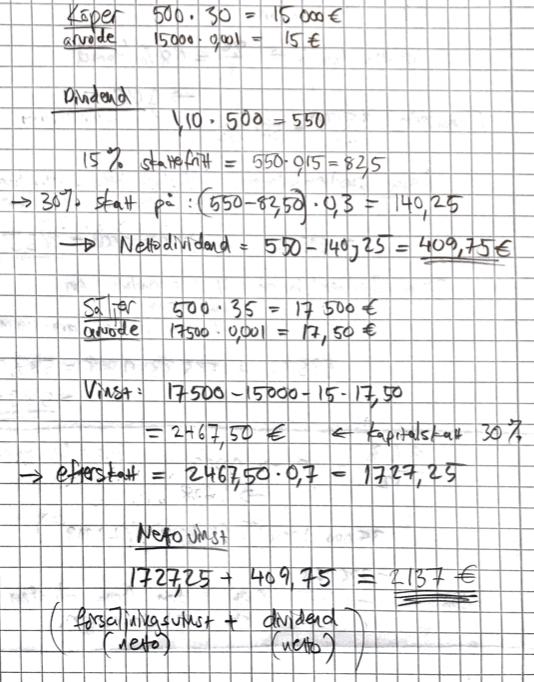 Köper 500 · 30 = 15 000 €
arvode 15000 · 0,001 = 15 €
Dividend
1,10 · 500 = 550
15 % skattefritt = 550 · 0,15 = 82,5
→ 30% skatt på : (550-82,50) · 0,3 = 140,25
→ Nettodividend = 550 - 140,25 = 409,75 €
Säljer 500 · 35 = 17 500 €
arvode 17500 · 0,001 = 17,50 €
Vinst: 17500 - 15000 - 15 - 17,50
= 2467,50 € ← kapitalskatt 30 %
→ efterskatt = 2467,50 · 0,7 = 1727,25
Nettovinst
1727,25 + 409,75 = 2137 €
( försäljningsvinst + dividend )
(netto) (netto)